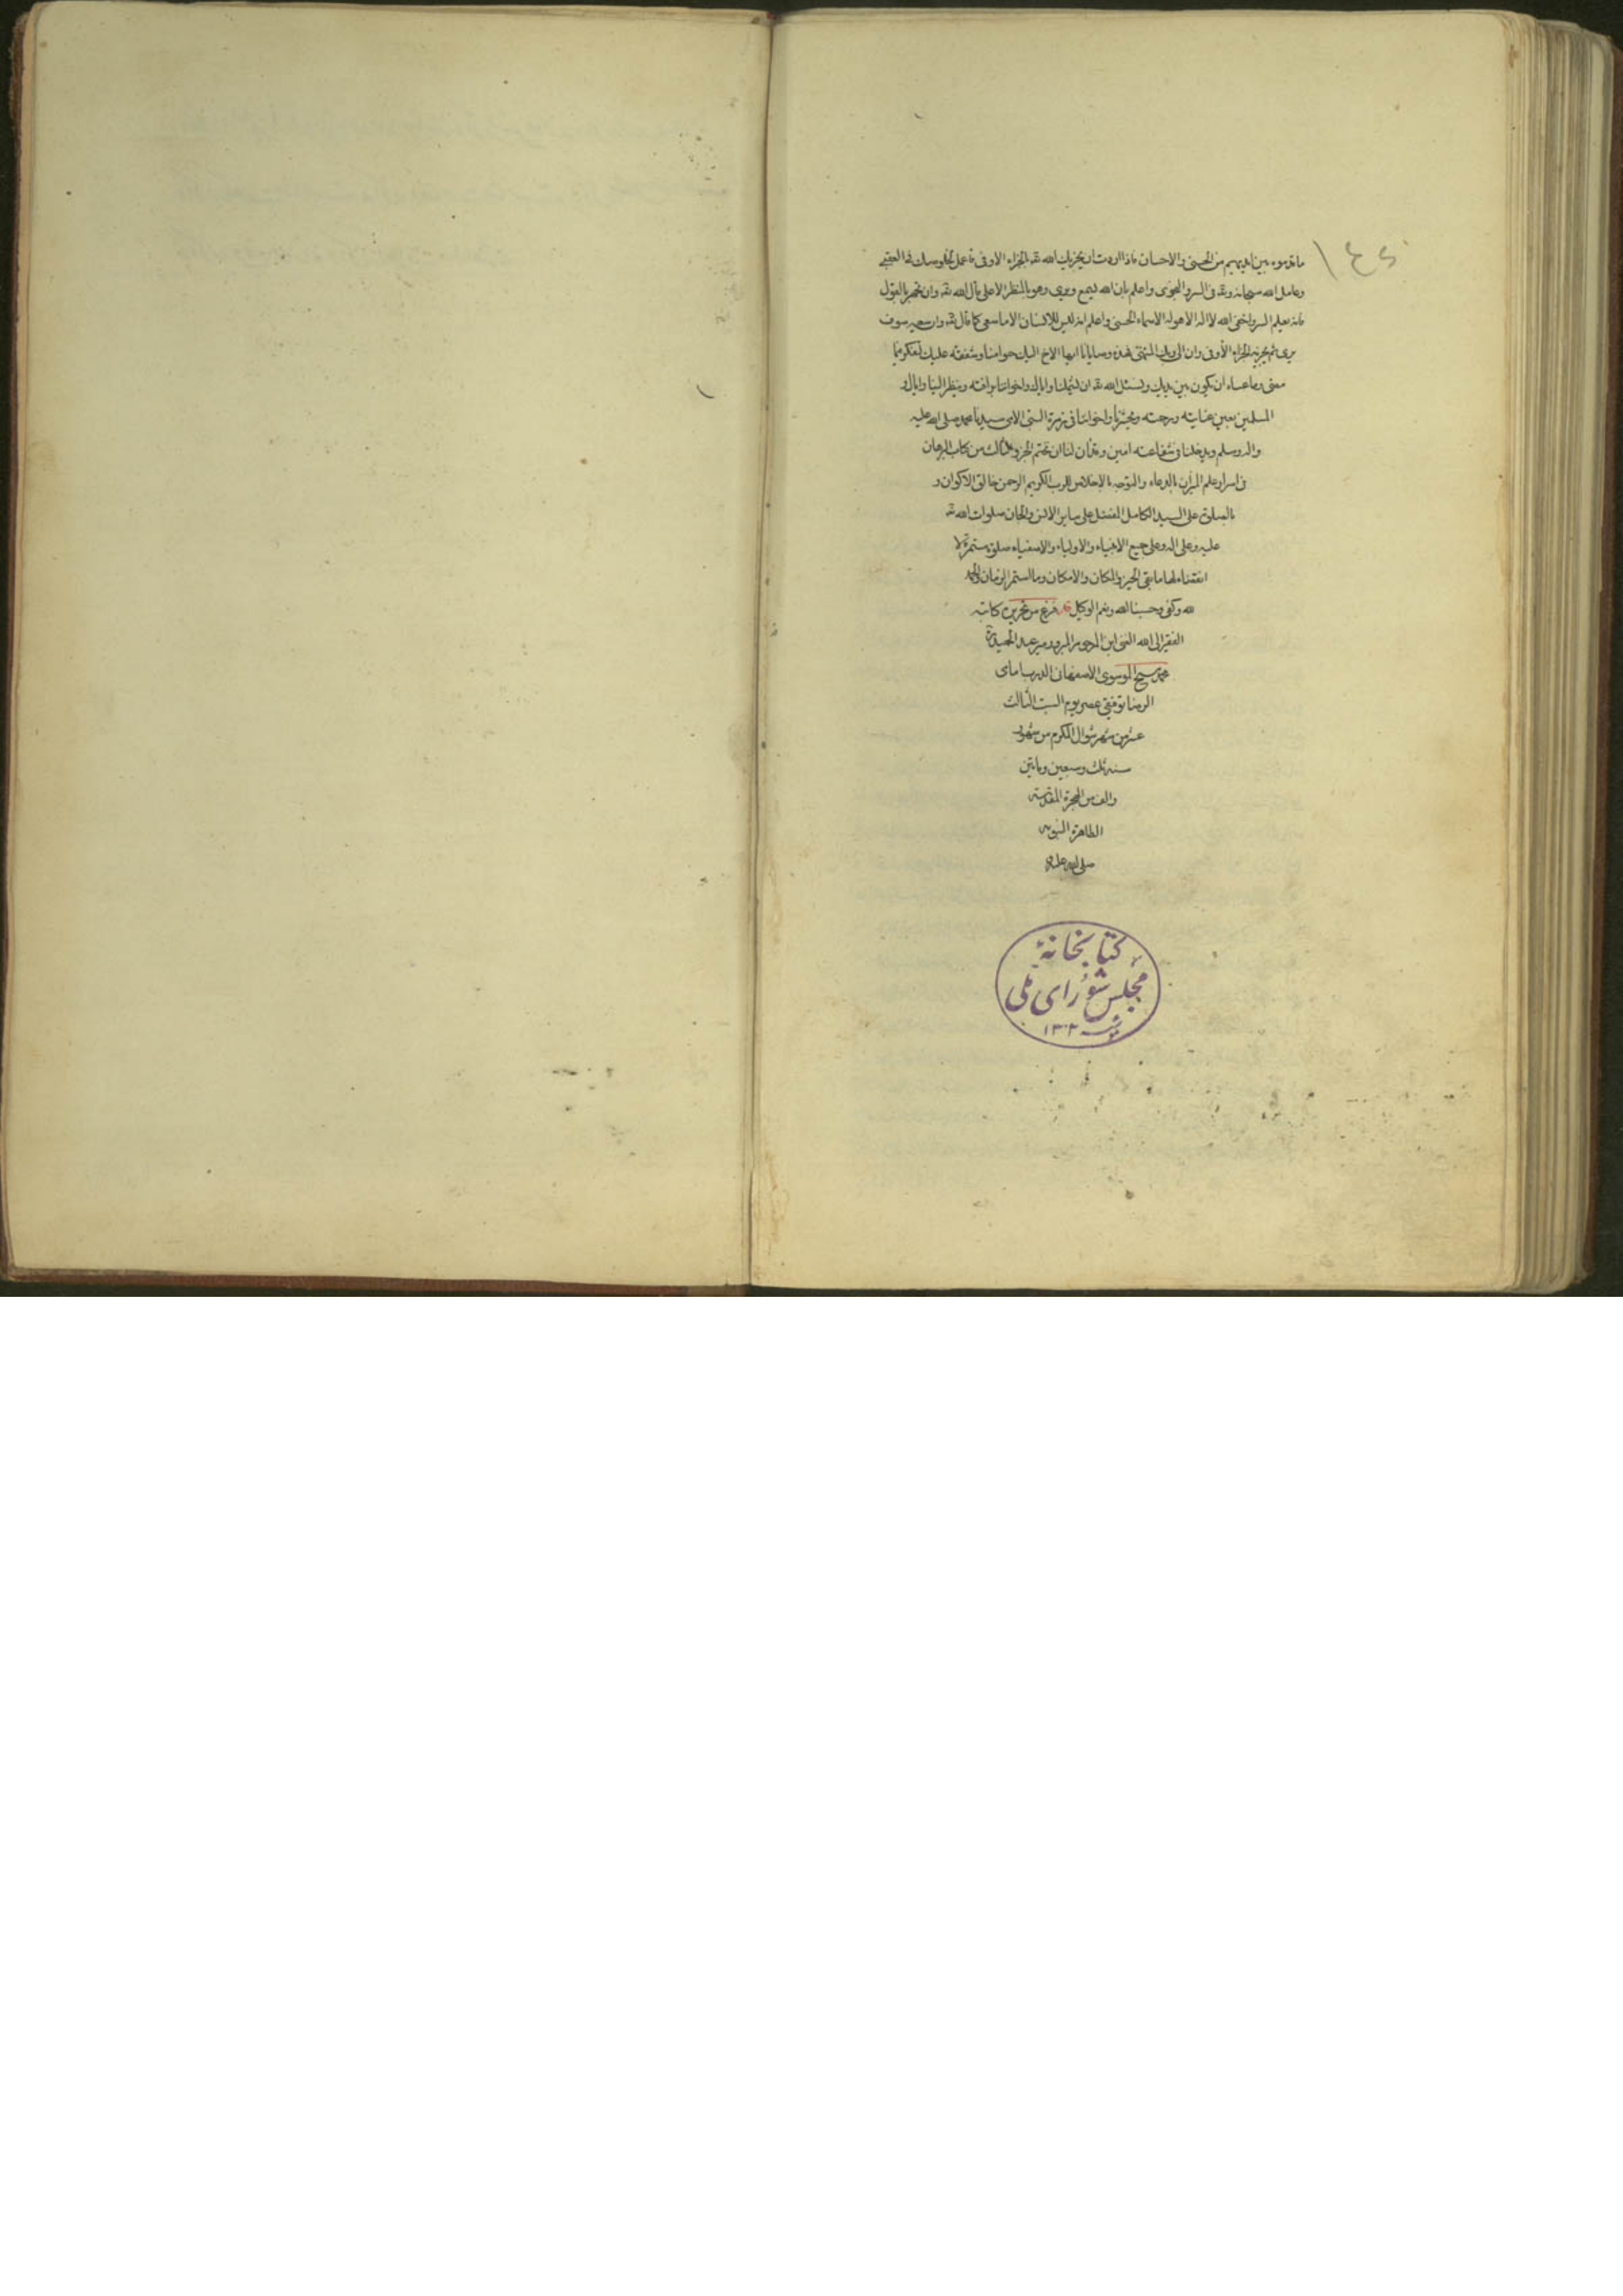 ما قدموه بين ايديهم من الحسنى والاحسان فاذا اردت ان يجزيك الله تعه الجزاء الاوفى فاعمل
وعامل الله سبحانه وتعه فى السر والنجوى واعلم بان الله يسمع ويرى وهو بالمنظر الاعلى قال الله تعه وان تجهر بالقول
فانه يعلم السر واخفى الله لا اله الا هو له الاسماء الحسنى واعلم انه ليس للانسان الا ما سعى كما قال تعه وان سعيه سوف
يرى ثم يجزيه الجزاء الأوفى وان الى ربك المنتهى فهذه وصايانا ايها الاخ اليك
معنى وما عساه ان يكون بين يديك ونسئل الله تعه ان يشملنا واياك واخواننا برافته وينظر الينا واياك و
المسلمين بعين عنايته ورحمته ويحشرنا واخواننا فى زمرة النبى الامى سيدنا محمد صلى الله عليه
واله وسلم ويدخلنا فى شفاعته امين وقد آن لنا ان نختم الجزو الثالث من كتاب البرهان
فى اسرار علم الميزان بالدعاء والتوجه بالاخلاص للرب الكريم الرحمن خالق الاكوان و
بالصلوة على السيد الكامل المفضل على ساير الانس والجان صلوات الله تعه
عليه وعلى اله وعلى جميع الانبياء والاولياء والاصفياء صلوة مستمرة لا
انقضاء لها ما بقى الحيز والمكان والامكان وما استمر الزمان والحمد
لله وكفى وحسبنا الله ونعم الوكيل قد فرغ من تحريره كاتبه
الفقير الى الله الغنى ابن المرحوم المبرور مير عبد الحميد
محمد مسيح الموسوى الاصفهانى
الرضا توفيقى عصر يوم السبت الثالث
عشر من شهر شوال المكرم من شهور
سنه ثلث وسبعين وماتين
والف من الهجرة المقدسه
الطاهرة النبويه
صلى الله عليه
كتابخانهٔ
مجلس شورای ملی
۱۳۰۲